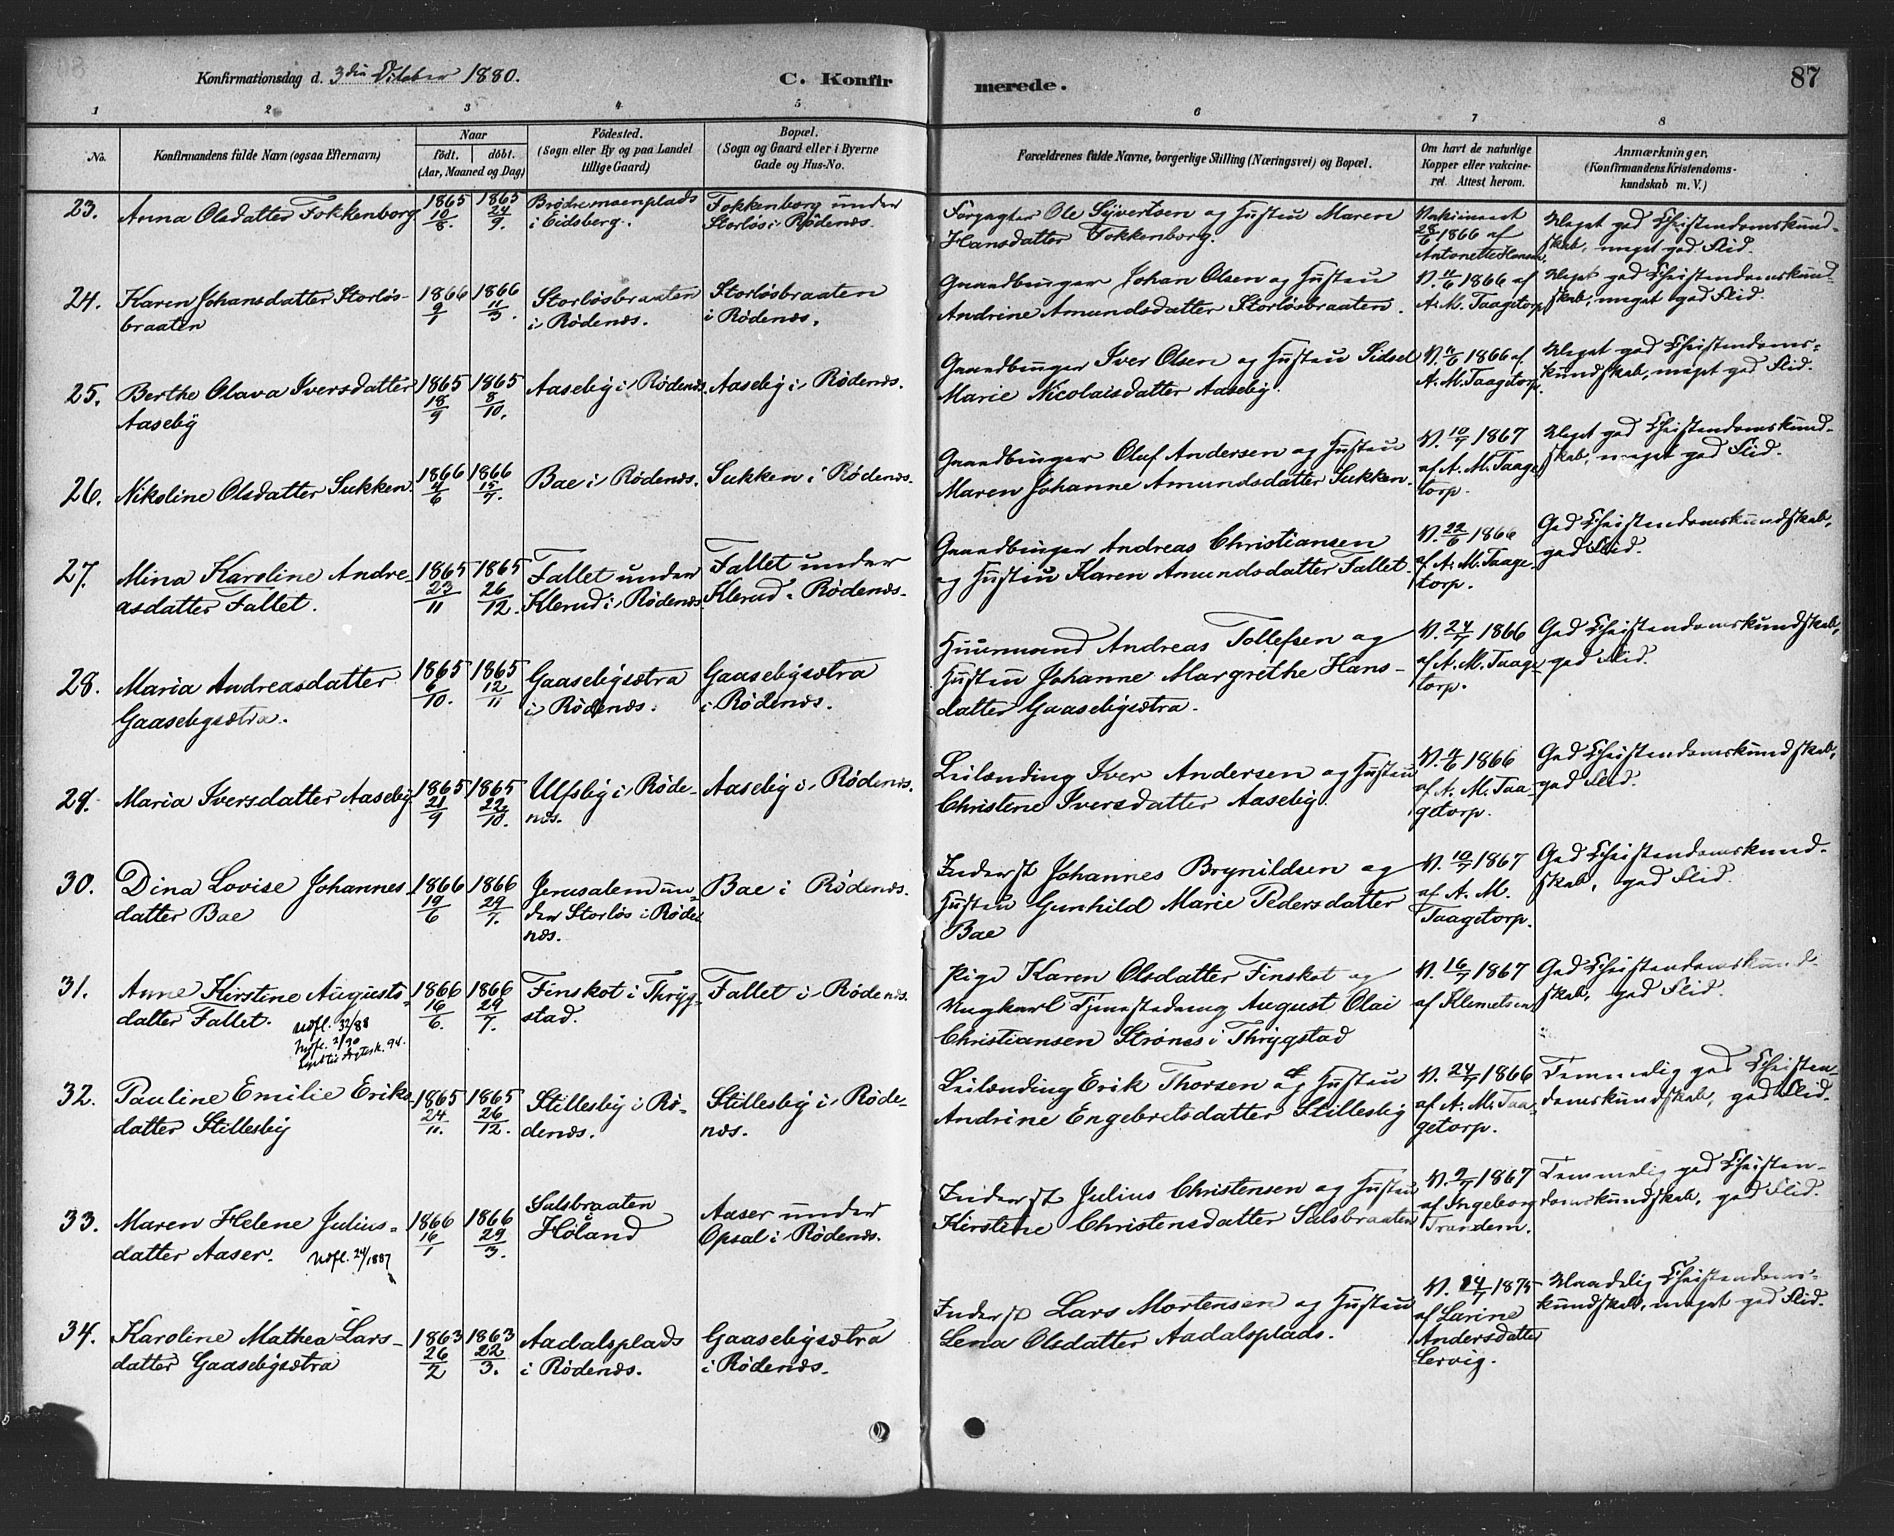 Konfirmationsdag d. 3die October 1880.
C. Konfirmerede.
87
1 2 3 4 5 6 7 8
No.
Konfirmandens fulde Navn (ogsaa Efternavn)
Naar
födt. döbt.
(Aar, Maaned og Dag)
Födested.
(Sogn eller By og paa Landet
tillige Gaard)
Bopæl.
(Sogn og Gaard eller i Byerne
Gade og Hus-No.
Forældrenes fulde Navne, borgerlige Stilling (Næringsvei) og Bopæl.
Om havt de naturlige
Kopper eller vakcine-
ret. Attest herom.
Anmærkninger.
(Konfirmandens Kristendoms-
kundskab m. V.)
23.
Anna Olsdatter Fokkenborg
1865 10/8.
1865 24/9.
Brødremoenplads
i Eidsberg.
Fokkenborg under
Storløs i Rødenæs.
Forpagter Ole Syvertsen og Hustru Maren
Hansdatter Fokkenborg.
Vakcineret
28/6 1866 af
Antonette Hansen.
Meget god Christendomskund-
skab, meget god Flid.
24.
Karen Johansdatter Storløs-
braaten
1866 9/1
1866 11/3.
Storløsbraaten
i Rødenæs.
Storløsbraaten
i Rødenæs.
Gaardbruger Johan Olsen og Hustru
Andrine Amundsdatter Storløsbraaten.
V. 11/6 1866 af
A. M. Taagetorp
Meget god Christendomskund-
skab, meget god Flid.
25.
Berthe Olava Iversdatter
Aaseby
1865 18/9
1865 8/10.
Aaseby i Rødenæs.
Aaseby i Rødenæs.
Gaardbruger Iver Olsen og Hustru Sidsel
Marie Nicolaisdatter Aaseby.
V. 11/6 1866 af
A. M. Taagetorp.
Meget god Christendoms-
kundskab, meget god Flid.
26.
Nikoline Olsdatter Sukken.
1866 4/6
1866 15/7.
Bae i Rødenæs.
Sukken i Rødenæs.
Gaardbruger Oluf Andersen og Hustru
Maren Johanne Amundsdatter Sukken.
V. 10/7 1867
af A. M. Taage-
torp.
Meget god Christendomskund-
skab, meget god Flid.
27.
Mina Karoline Andre-
asdatter Fallet.
1865 23/11
1865 26/12.
Fallet under
Klerud i Rødenæs
Fallet under
Klerud i Rødenæs.
Gaardbruger Andreas Christiansen
og Hustru Karen Amundsdatter Fallet.
V. 22/6 1866
af A. M. Taage-
torp.
God Christendomskundskab,
god Flid.
28.
Maria Andreasdatter
Gaasebysætra.
1865 6/10.
1865 12/11
Gaasebysætra
i Rødenæs.
Gaasebysætra
i Rødenæs.
Huusmand Andreas Tollefsen og
Hustru Johanne Margrethe Hans-
datter Gaasebysætra.
V. 24/7 1866
af A. M. Taage-
torp.
God Christendomskundskab,
god Flid.
29.
Maria Iversdatter Aaseby.
1865 21/9
1865 22/10.
Ulfsby i Røde-
næs.
Aaseby i Rødenæs.
Leilænding Iver Andersen og Hustru
Christene Iversdatter Aaseby.
V. 11/6 1866
af A. M. Taa-
getorp.
God Christendomskundskab,
god Flid.
30.
Dina Lovise Johannes-
datter Bae
1866 19/6
1866 29/7.
Jerusalem un-
der Storløs i Røde-
næs.
Bae i Rødenæs.
Inderst Johannes Brynildsen og
Hustru Gunhild Marie Pedersdatter
Bae
V. 10/7 1867
af A. M.
Taagetorp.
God Christendomskund-
skab, god Flid.
31.
Anne Kirstine Augusts-
datter Fallet.
Udfl. 32/88
Udfl. 2/90
1866 16/6.
1866 29/7.
Finskot i Thrygg-
stad.
Fallet i Rødenæs.
Pige Karen Olsdatter Finskot og
Ungkarl Tjenestedreng August Olai
Christiansen Strønæs i Thrygstad
V. 16/7 1867
af Klemetsen
God Christendomskund-
skab, god Flid.
32.
Pauline Emilie Eriks-
datter Stillesby
1865 24/11.
1865 26/12.
Stillesby i Rø-
denæs.
Stillesby i Røde-
næs.
Leilænding Erik Thorsen og Hustru
Andrine Engebretsdatter Stillesby
V. 24/7 1866
af A. M. Taa-
getorp.
Temmelig god Christen-
domskundskab, god Flid.
33.
Maren Helene Julius-
datter Aaser.
Udfl. 24/1887
1866 16/1
1866 29/3.
Salsbraaten
i
Høland
Aaser under
Opsal i Rødenæs.
Inderst Julius Christensen og Hustru
Kirstine Christensdatter Salsbraaten
V. 9/7 1867
af Ingeborg
Trandem.
Temmelig god Christen-
domskundskab, god Flid.
34.
Karoline Mathea Lars-
datter Gaasebysætra
1863 26/2
1863 22/3.
Aadalsplads
i Rødenæs.
Gaasebysætra
i Rødenæs.
Inderst Lars Mortensen og Hustru
Lena Olsdatter Aadalsplads.
V. 14/7 1875
af Larine
Andersdatter
Lervig.
Maadelig Christendoms-
kundskab, meget god Flid.